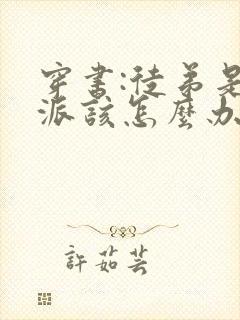 穿書:徒弟是
派該怎麼办
許茹芸